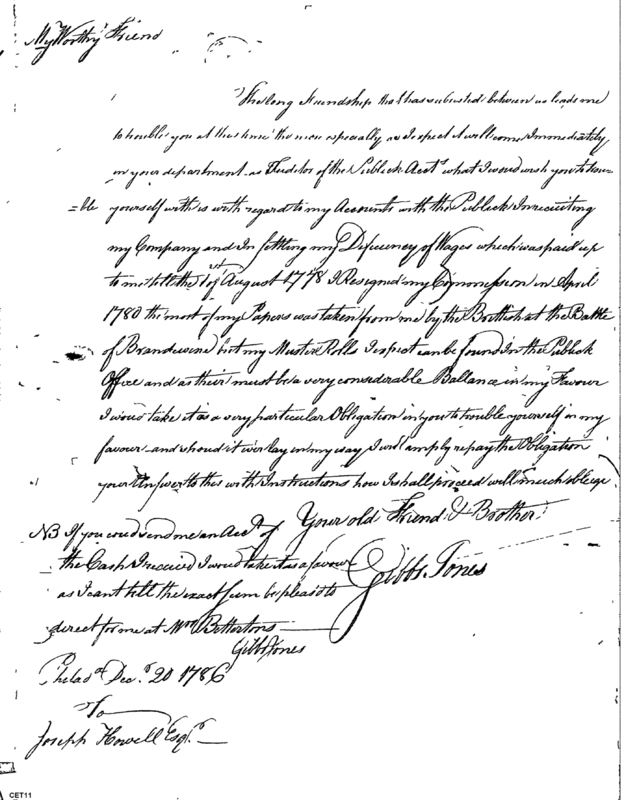 My Worthy Friend
The long Friendship that has subsisted between us leads me
to trouble you at this time the more especially as I expect it will come Immediately
in your department as Auditor of the Publick Acts what I woud wish you to trou=
=ble yourself with is with regard to my Accounts with the Publick In recruiting
my Company and In settling my Deficiency of Wages which was paid up
to me till the 1st of August 1778 I Resigned my Commission in April
1780 the most of my Papers was taken from me by the Brittish at the Battle
of Brandewine but my Muster Rolls I expect can be found In the Publick
Office and as their must be a very considerable Ballance in my Favour
I woud take it as a very particular Obligation in you to trouble yourself in my
favour and shoud it ever lay in my way I will amply repay the Obligation
your Answer to this with Instructions how I shall proceed will much oblige
Your old Friend & Brother
Gibbs Jones
NB If you coud send me an Acct of
the Cash I received I woud take it as a favour
as I cant tell the exact sum be pleasd to
direct for me at Mrs Bettertons
Gibbs Jones
Philada Decr 20 1786
To
Joseph Howell Esqr
CET11